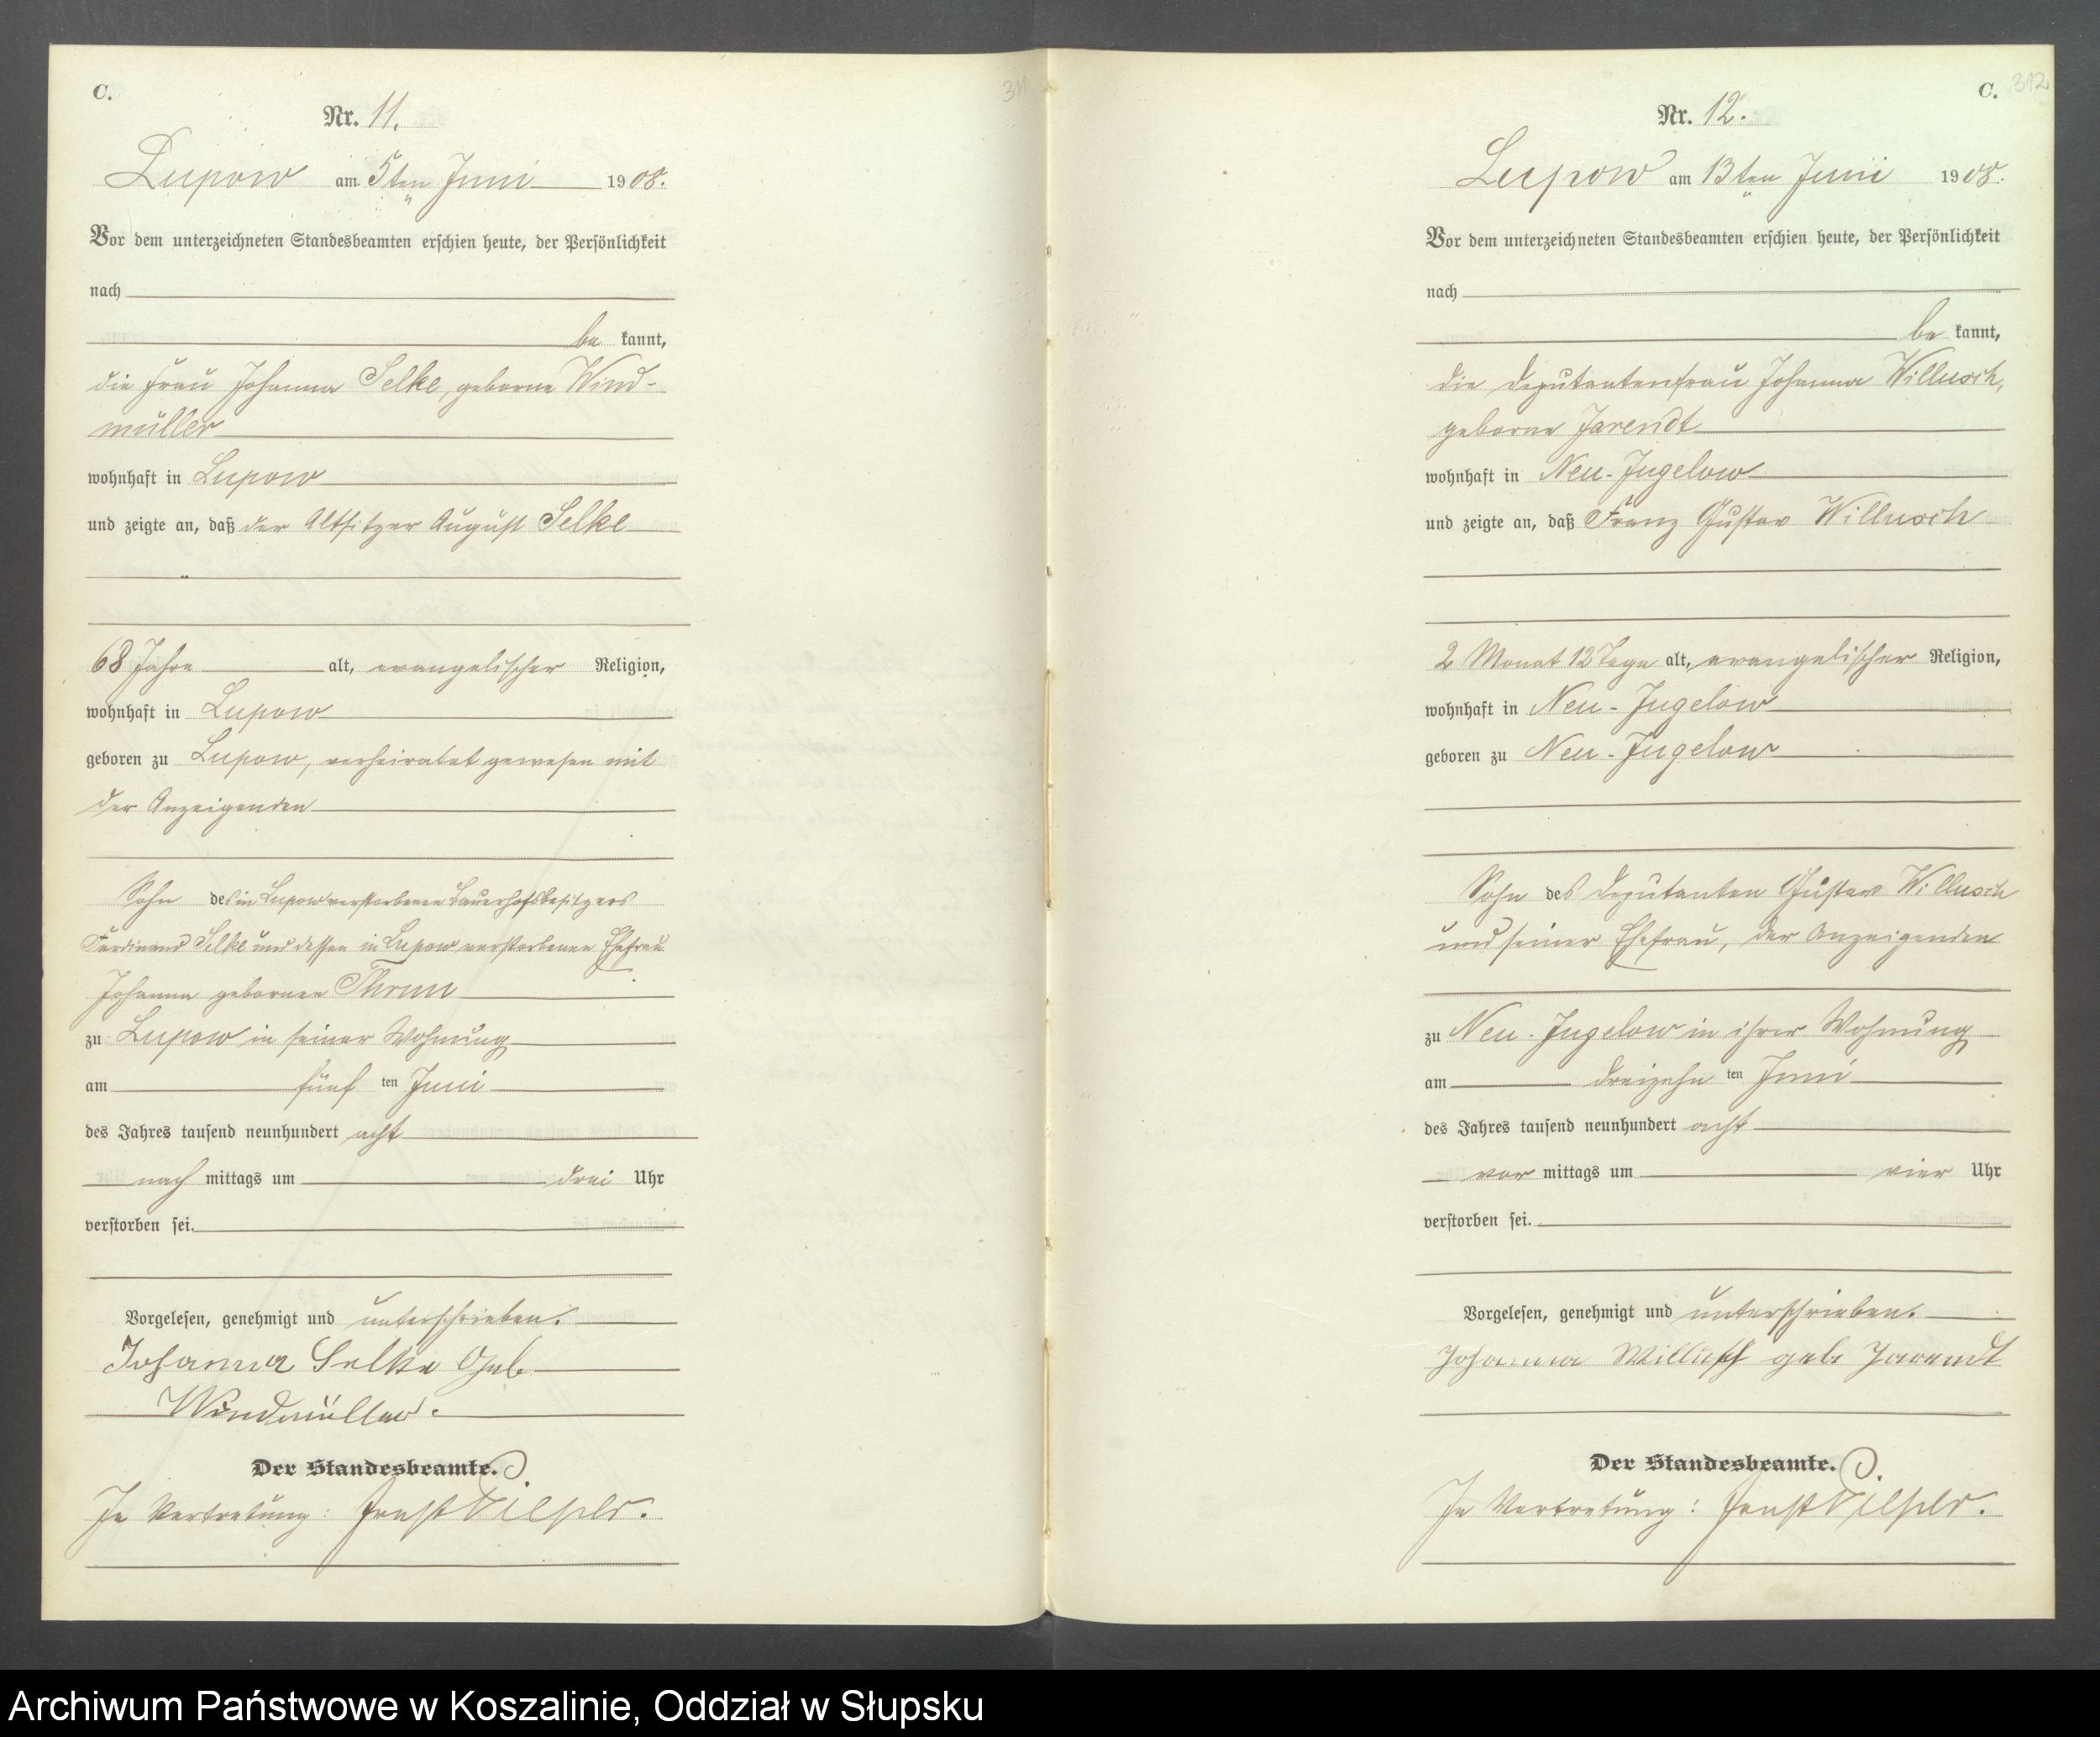 C.
311
Nr. 11.
Lupow am 5ten Juni 1908.
Vor dem unterzeichneten Standesbeamten erschien heute, der Persönlichkeit
nach
be kannt,
die Frau Johanna Selke, geborne Wind-
müller
wohnhaft in Lupow
und zeigte an, daß der Altsitzer August Selke
68 Jahre alt, evangelischer Religion,
wohnhaft in Lupow
geboren zu Lupow, verheiratet gewesen mit
der Anzeigenden
Sohn des in Lupow verstorbenen Bauerhofsbesitzers
Ferdinand Selke und dessen in Lupow verstorbenen Ehefrau
Johanna gebornen Thrun
zu Lupow in seiner Wohnung
am fünf ten Juni
des Jahres tausend neunhundert acht
nach mittags um drei Uhr
verstorben sei.
Vorgelesen, genehmigt und unterschrieben.
Johanna Selke Geb
Windmüller.
Der Standesbeamte.
In Vertretung: Ernst
C.
312
Nr. 12.
Lupow am 13ten Juni 1908.
Vor dem unterzeichneten Standesbeamten erschien heute, der Persönlichkeit
nach
be kannt,
die Deputantenfrau Johanna Willusch,
geborne Jarendt
wohnhaft in Neu-Jugelow
und zeigte an, daß Franz Gustav Willusch
2 Monat 12 Tage alt, evangelischer Religion,
wohnhaft in Neu-Jugelow
geboren zu Neu-Jugelow
Sohn des Deputanten Gustav Willusch
und seiner Ehefrau, der Anzeigenden
zu Neu-Jugelow in ihrer Wohnung
am dreizehn ten Juni
des Jahres tausend neunhundert acht
vor mittags um vier Uhr
verstorben sei.
Vorgelesen, genehmigt und unterschrieben.
Johanna Willusch geb Jarendt
Der Standesbeamte.
In Vertretung: Ernst
Archiwum Państwowe w Koszalinie, Oddział w Słupsku